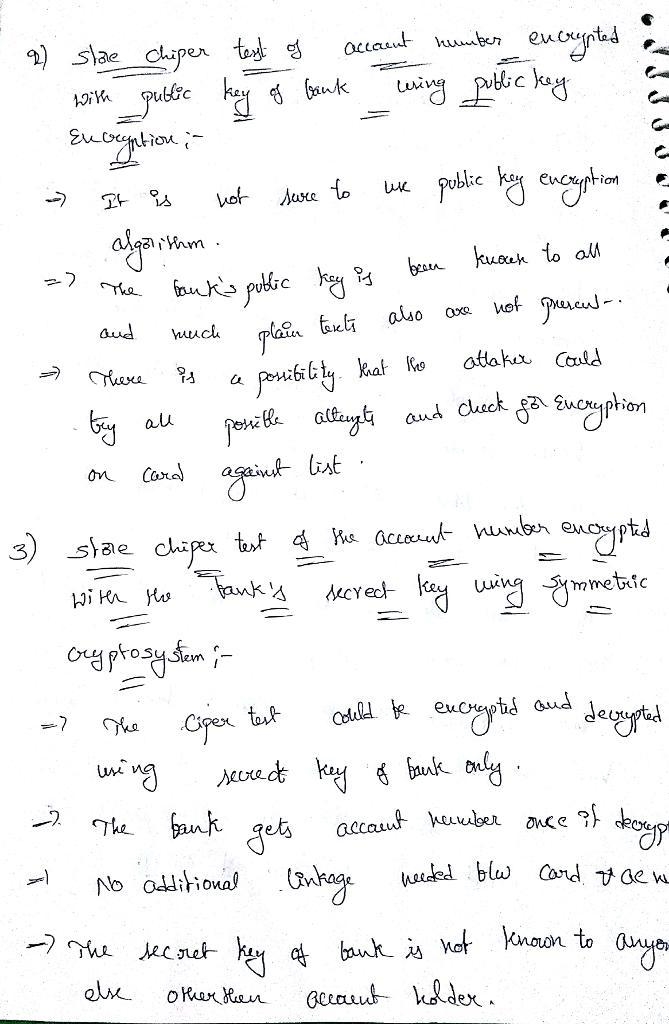 2) store chiper test of account number encrypted
with public key of bank using public key
Encryption :-
=> It is not sure to use public key encryption
algorithm.
=> The bank's public key is been known to all
and much plain texts also are not present.
=> There is a possibility that the attaker could
try all possible attempts and check for Encryption
on card against list.
3) store chiper test of the account number encrypted
with the bank's secrect key using symmetric
cryptosystem :-
=> The Ciper test could be encrypted and decrypted
using secrect key of bank only.
=> The bank gets account number once it decryp
=> No additional linkage needed b/w card &
=> The secret key of bank is not known to anyon
else otherthen account holder.